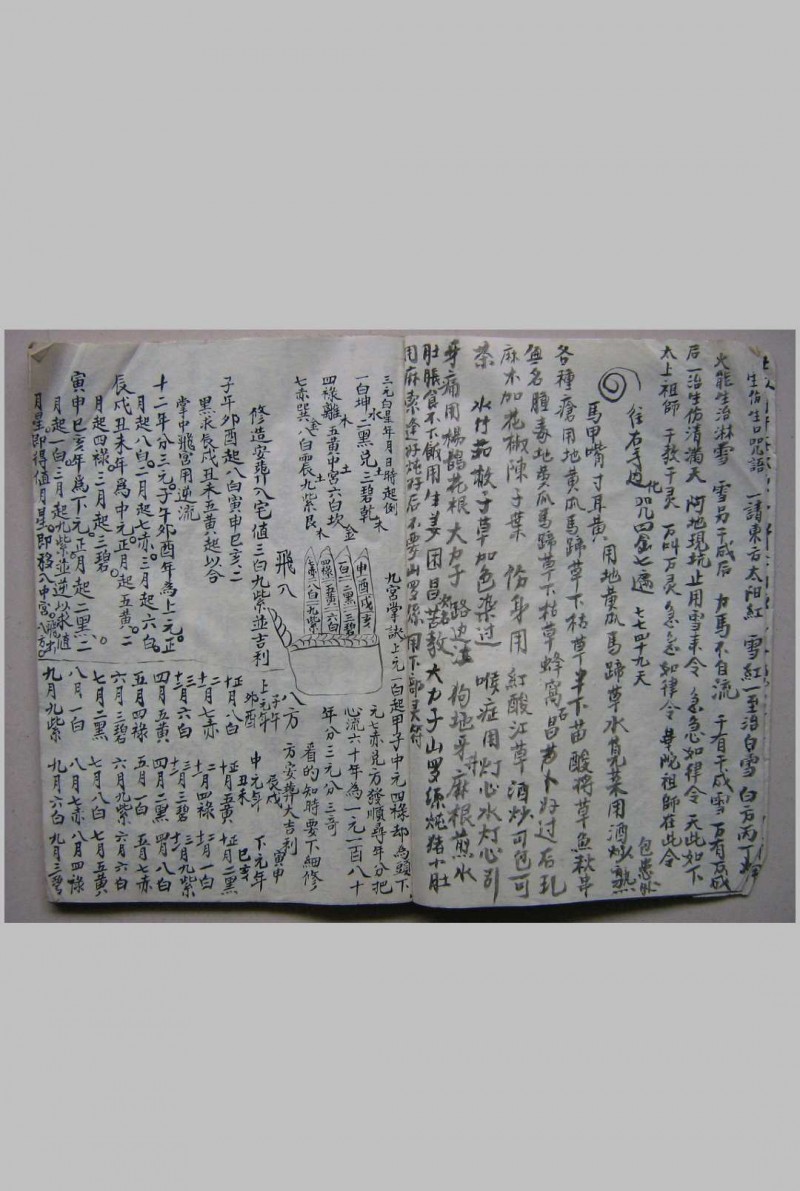 生伤生口咒语 一請東方太阳紅 雪紅一至治白雪 白方丙丁
火能生治淋雪 雪另干成后 力馬不自流 千有千成雪 万有万成
后一治生伤清满天 阿地現坑止用雪来令 急急如律令 天此如下
太上祖師 千教千灵 万叫万灵 急急如律令 華陀祖師在此令
往右手过 化 咒四金七遍 七七四十九天
馬甲嘴寸耳黄 用地黄瓜馬蹄草水莧菜用酒炒熟
包患処
各種瘡用地黄瓜馬蹄草下枯草半下苗酸将草魚秋串
無名腫毒地黄瓜馬蹄草下枯草蜂窩石昌芦卜好过石孔
麻木加花椒陳子葉 伤身用 紅酸江草 酒炒可包可
茶 水竹茹散子草加色染过 喉症用灯心水灯心引
牙痛用楊鵲花根 大力子 路边 狗地牙麻根煎水
肚脹食不下飯用生姜 田昌 大力子山罗 炖猪小肚
用麻索 好炖好后不要山罗 用下部灵符
九宫掌訣上元一白起甲子中元四綠却為頭下
元七赤兑方發順尋年分把
心流六十年為一元一百八十
年分三元分三奇
看的知時要下細修
八方
方安葬大吉利
三元白星年月日時起例
一白坤二黑兑三碧乾
四綠離五黄中宫六白坎
七赤巽八白震九紫艮
水 木 土 土 金 金 木 木
申酉戌亥
一白二黑三碧
四綠五黄六白
七赤八白九紫
飛八
修造安葬入宅值三白九紫並吉利
子年夘酉起八白寅申巳亥二
黑求辰戌丑未五黄起以合
掌中飛宫用逆流
十二年分三元子午夘酉年為上元正
月起八白二月起七赤三月起六白
辰戌丑未年為中元正月起五黄二
月起四綠三月起三碧
寅申巳亥年為下元正月起二黑二
月起一白三月起九紫並逆以求值
月星即得值月星即移入中宫八方
上元年 子午夘酉
正月八白
二月七赤
三月六白
四月五黄
五月四綠
六月三碧
七月二黑
八月一白
九月九紫
中元年 辰戌丑未
正月五黄
二月四綠
三月三碧
四月二黑
五月一白
六月九紫
七月八白
八月七赤
九月六白
下元年 寅申巳亥
正月二黑
二月一白
三月九紫
四月八白
五月七赤
六月六白
七月五黄
八月四綠
九月三碧